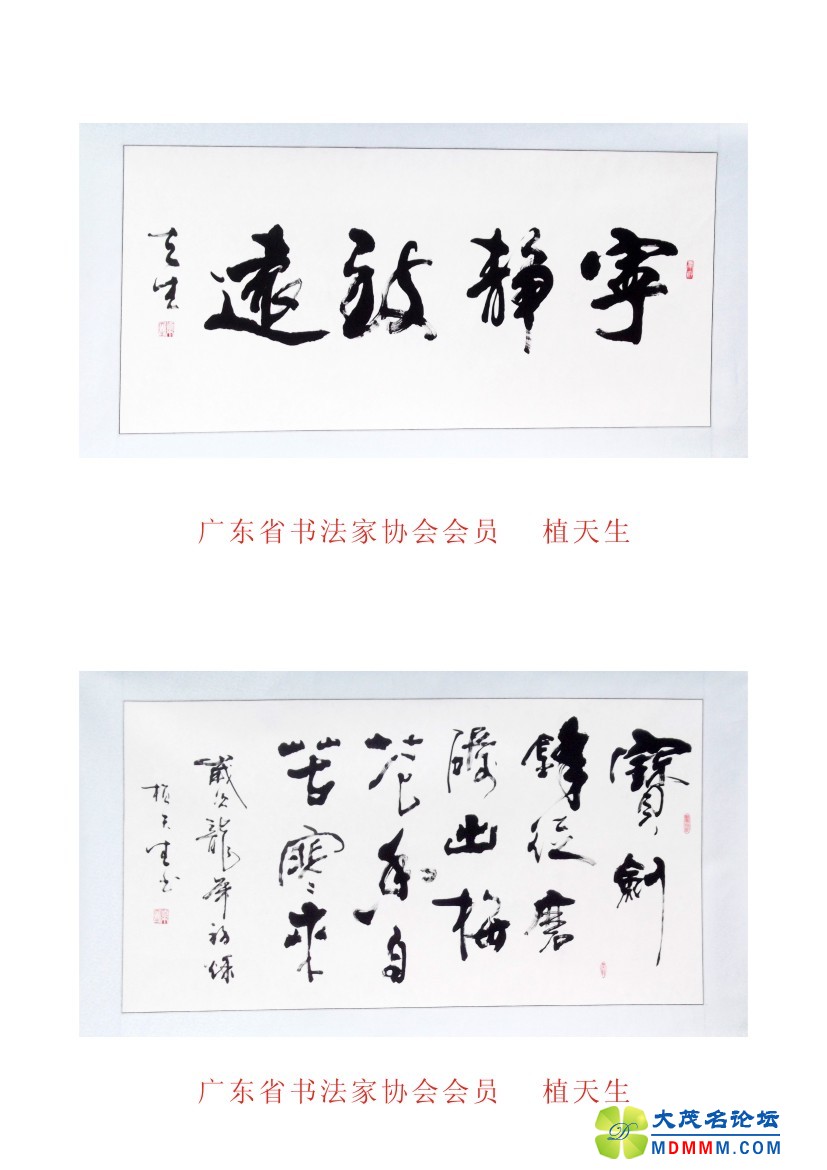 寧静致遠
天生
广东省书法家协会会员 植天生
寶劍
鋒從磨
礪出梅
花香自
苦寒來
歲次龍年初
植天生书
广东省书法家协会会员 植天生
大茂名论坛
MDMMM.COM